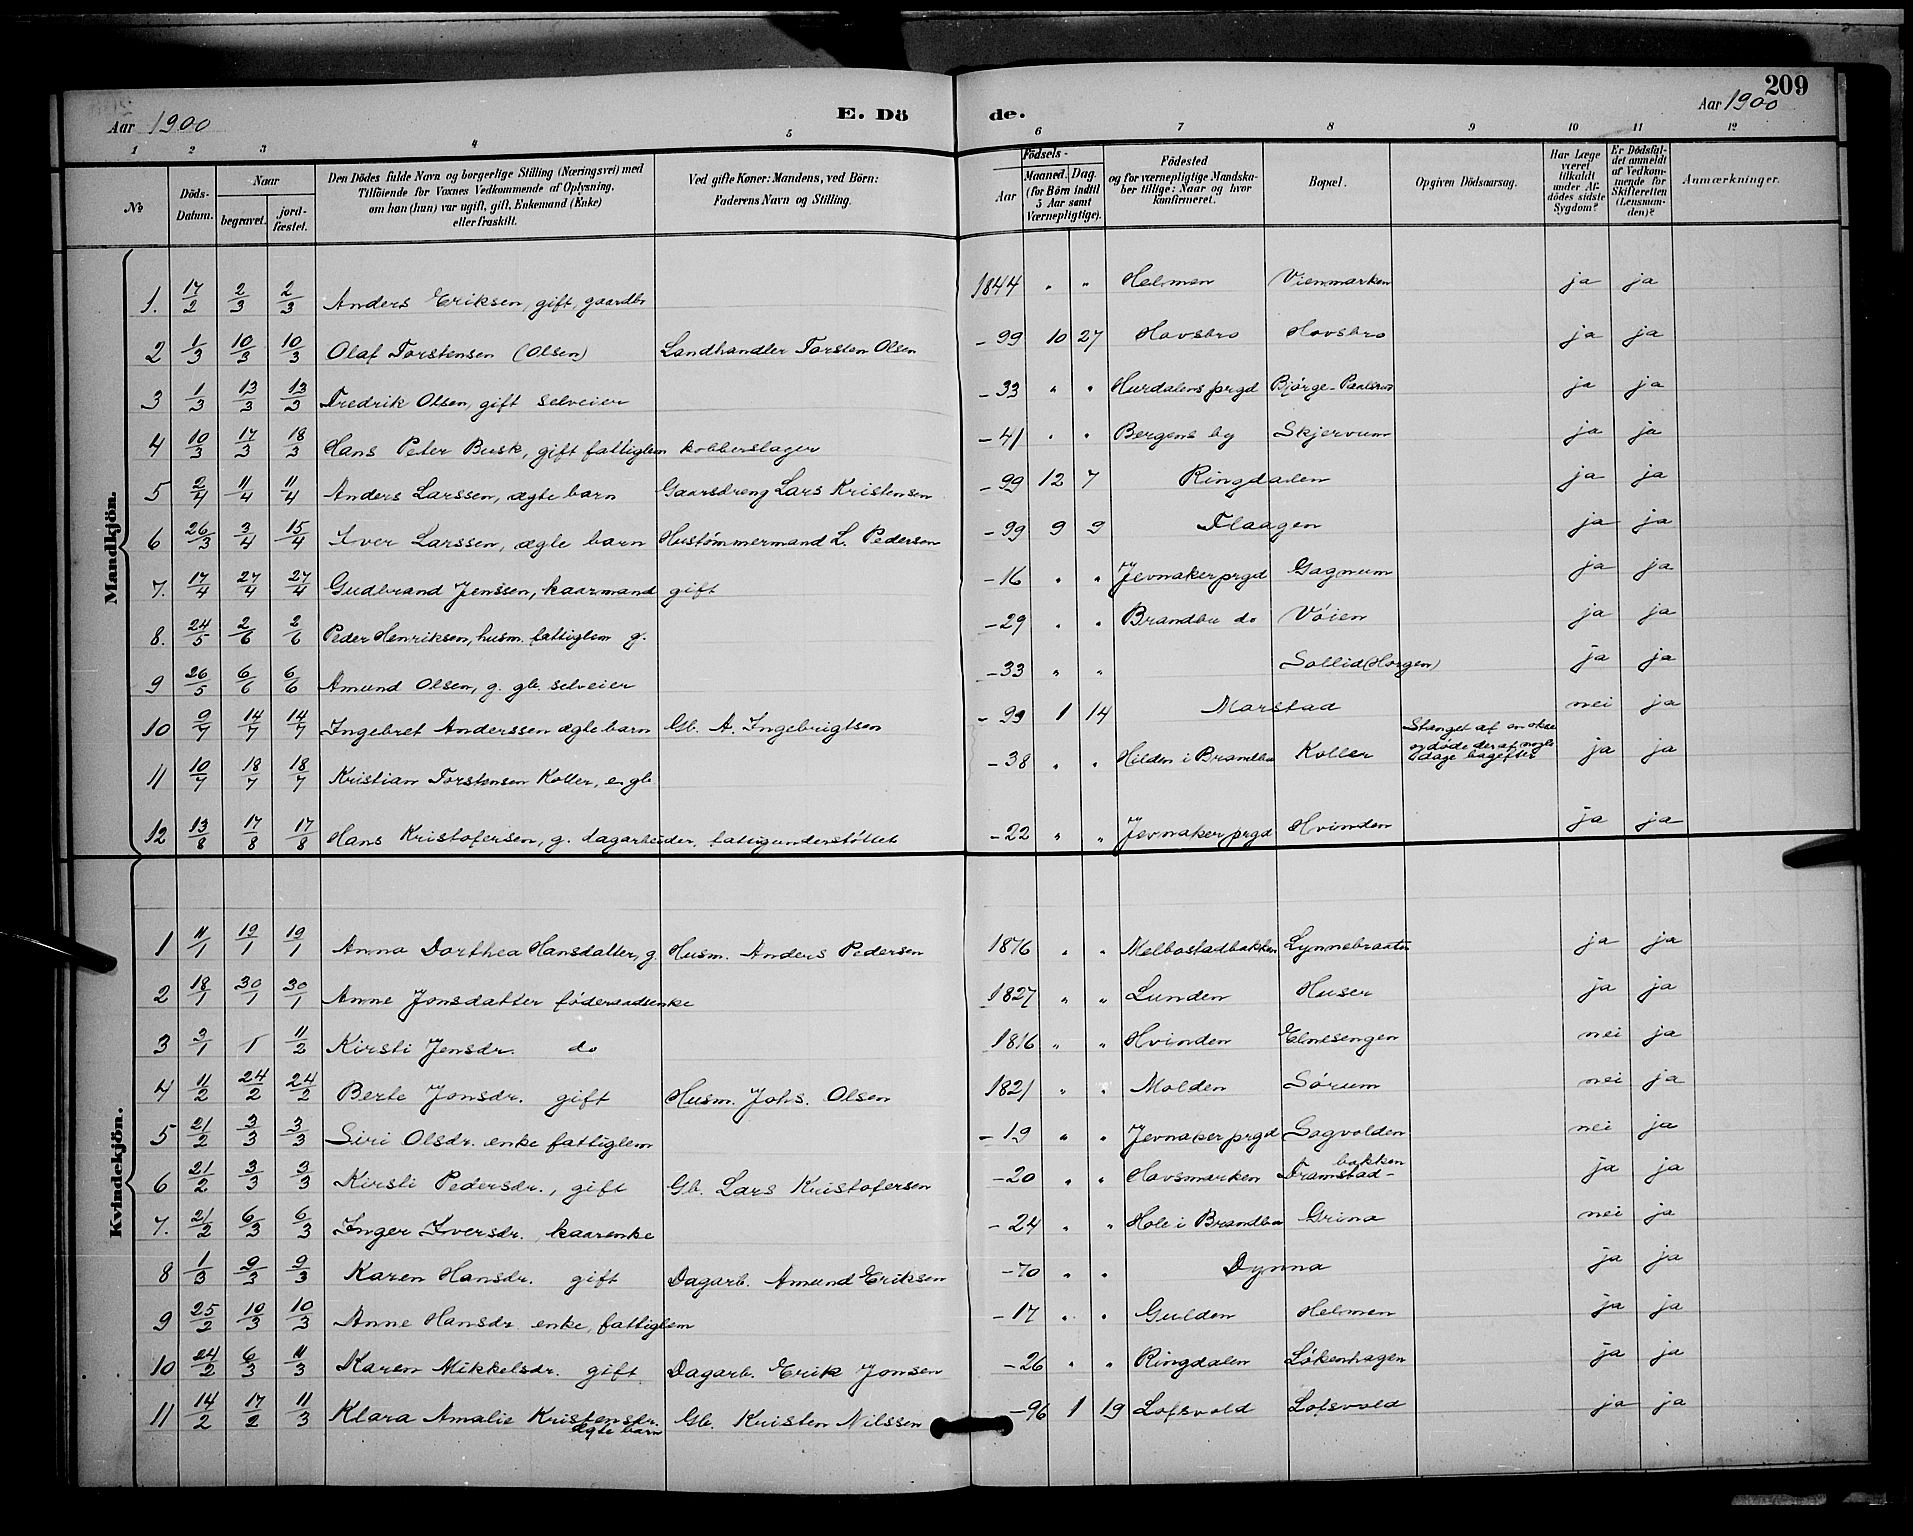 209
Aar 1900 E. Dö de. Aar 1900
1 2 3 4 5 6 7 8 9 10 11 12
No. Döds-Datum. Naar begravet. jordfæstet. Den Dödes fulde Navn og borgerlige Stilling (Næringsvei) med Tilföiende for Voxnes Vedkommende af Oplysning, om han (hun) var ugift, gift, Enkemand (Enke) eller fraskilt. Ved gifte Koner: Mandens, ved Börn: Faderens Navn og Stilling. Födsels- Aar Maaned. Dag. (for Börn indtil 5 Aar samt Værnepligtige). Födested og for værnepligtige Mandskaber tillige: Naar og hvor konfirmeret. Bopæl. Opgiven Dödsaarsag. Har Læge været tilkaldt under Afdödes sidste Sygdom? Er Dödsfaldet anmeldt af Vedkommende for Skifteretten (Lensmanden)? Anmærkninger.
Mandkjön.
1. 17/2 2/3 2/3 Anders Eriksen, gift, gaardbr 1844 " " Helmen Vienmarken ja ja
2 1/3 10/3 10/3 Olaf Torstensen (Olsen) Landhandler Torsten Olsen -99 10 27 Hovsbro Hovsbro ja ja
3 1/3 13/3 13/3 Fredrik Olsen, gift selveier -33 " " Hurdalens prgd Bjørge-Paalsrud ja ja
4 10/3 17/3 18/3 Hans Peter Busk, gift fattiglem kobberslager -41 " " Bergens by Skjervum ja ja
5 2/4 11/4 11/4 Anders Larssen, ægte barn Gaarsdreng Lars Kristensen -99 12 7 Ringdalen ja ja
6 26/3 3/4 15/4 Iver Larssen, ægte barn Hustømmermand L. Pedersen -99 9 9 Flaagen ja ja
7. 17/4 27/4 27/4 Gudbrand Jenssen, kaarmand gift -16 " " Jevnaker prgd Gagnum ja ja
8. 24/5 2/6 2/6 Peder Henriksen, husm. fattiglem g. -29 " " Brandbu do Vøien ja ja
9 26/5 6/6 6/6 Amund Olsen, g. gb. selveier -33 " " Sollid (Horgen) ja ja
10 9/7 14/7 14/7 Ingebret Anderssen ægte barn Gb. A. Ingebrigtsen -99 1 14 Marstad nei ja
11 10/7 18/7 18/7 Kristian Torstensen Koller, e. gb -38 " " Hilden i Brandbu Koller Stanget af en okse og døde deraf nogle dage bagefter ja ja
12 13/8 17/8 17/8 Hans Kristofersen, g. dagarbeider, fattigunderstøttet -22 " " Jevnaker prgd Hvinden ja ja
Kvindekjön.
1 11/1 19/1 19/1 Anna Dorthea Hansdatter, g. Husm. Anders Pedersen 1876 " " Melbostadbakken Lynnebraaten ja ja
2 18/1 30/1 30/1 Anne Jonsdatter føderaadsenke 1827 " " Lunden Huser ja ja
3 3/1 11/2 Kirsti Jensdr. do 1816 " " Hvinden Elnesengen nei ja
4 11/2 24/2 24/2 Berte Jonsdr. gift Husm. Johs. Olsen 1821 " " Molden Sørum nei ja
5 21/2 3/3 3/3 Siri Olsdr. enke fattiglem -19 " " Jevnaker prgd Sagvolden nei ja
6 21/2 3/3 3/3 Kirsti Pedersdr., gift Gb. Lars Kristofersen -20 " " Hovsmarken Framstad-bakken ja ja
7. 21/2 6/3 6/3 Inger Iversdr. kaarenke -24 " " Hole i Brandbu Grina nei ja
8 1/3 9/3 9/3 Karen Hansdr. gift Dagarb. Amund Eriksen -70 " " Dynna ja ja
9 25/2 10/3 10/3 Anne Hansdr. enke, fattiglem -17 " " Gulden Helmen ja ja
10 24/2 6/3 11/3 Karen Mikkelsdr. gift Dagarb. Erik Jonsen -26 " " Ringdalen Løkenhagen ja ja
11 14/2 17/2 11/3 Klara Amalie Kristensdr. ægte barn Gb. Kristen Nilssen -96 1 19 Lofsvold Lofsvold ja ja